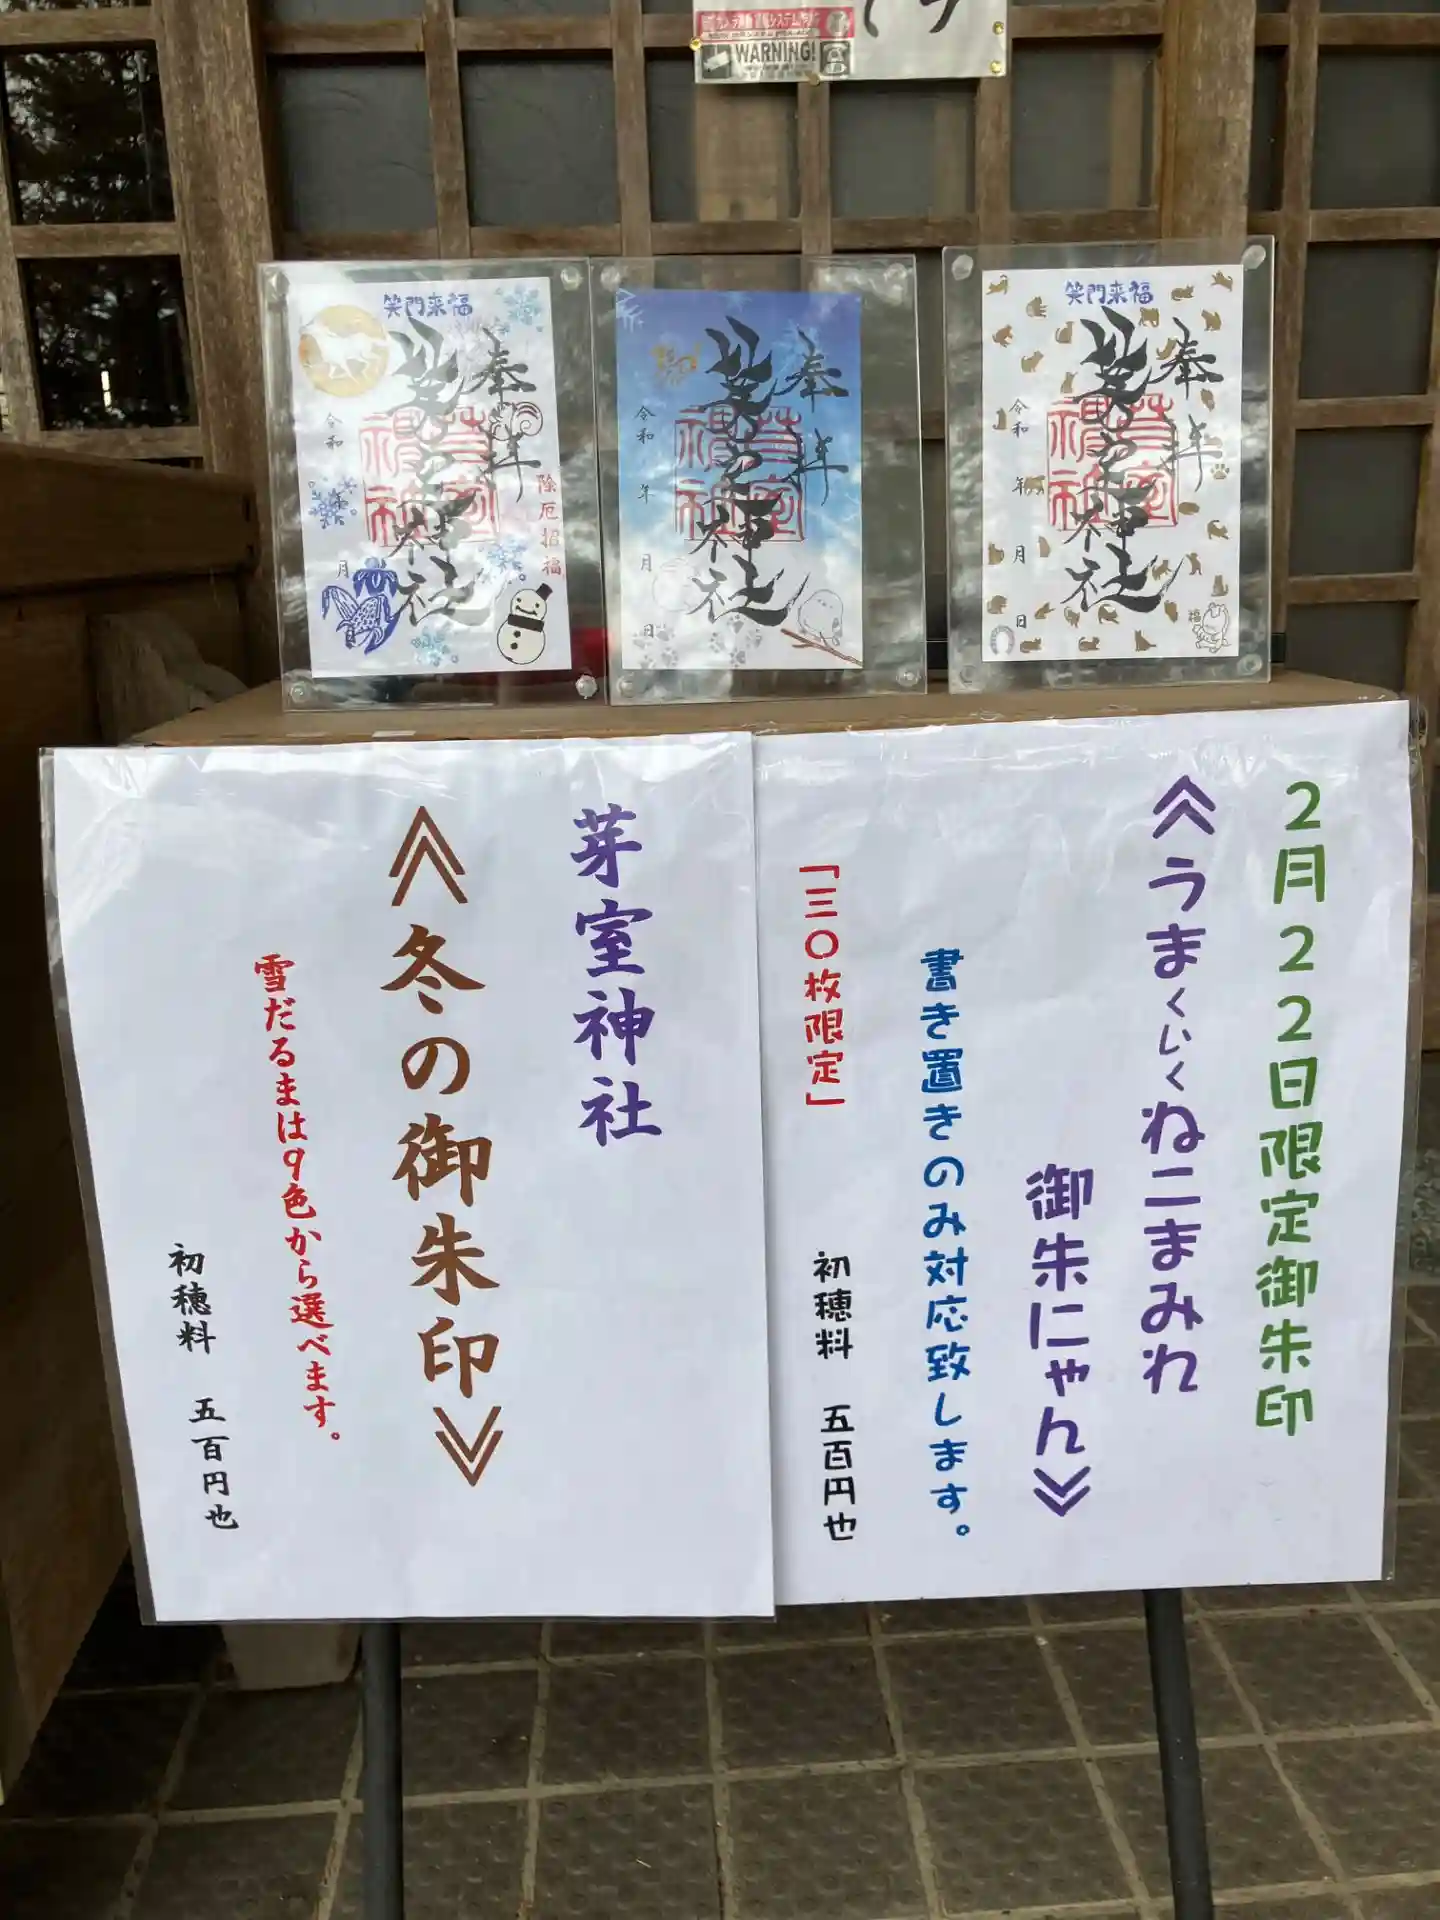 WARNING!
笑門来福
奉拝
芽室神社
除厄招福
令和 年 月 日
奉拝
芽室神社
令和 年 月 日
笑門来福
奉拝
芽室神社
令和 年 月 日
福
2月22日限定御朱印
≪うまくぃくねこまみれ
御朱にゃん≫
書き置きのみ対応致します。
「三〇枚限定」
初穂料 五百円也
芽室神社
≪冬の御朱印≫
雪だるまは9色から選べます。
初穂料 五百円也